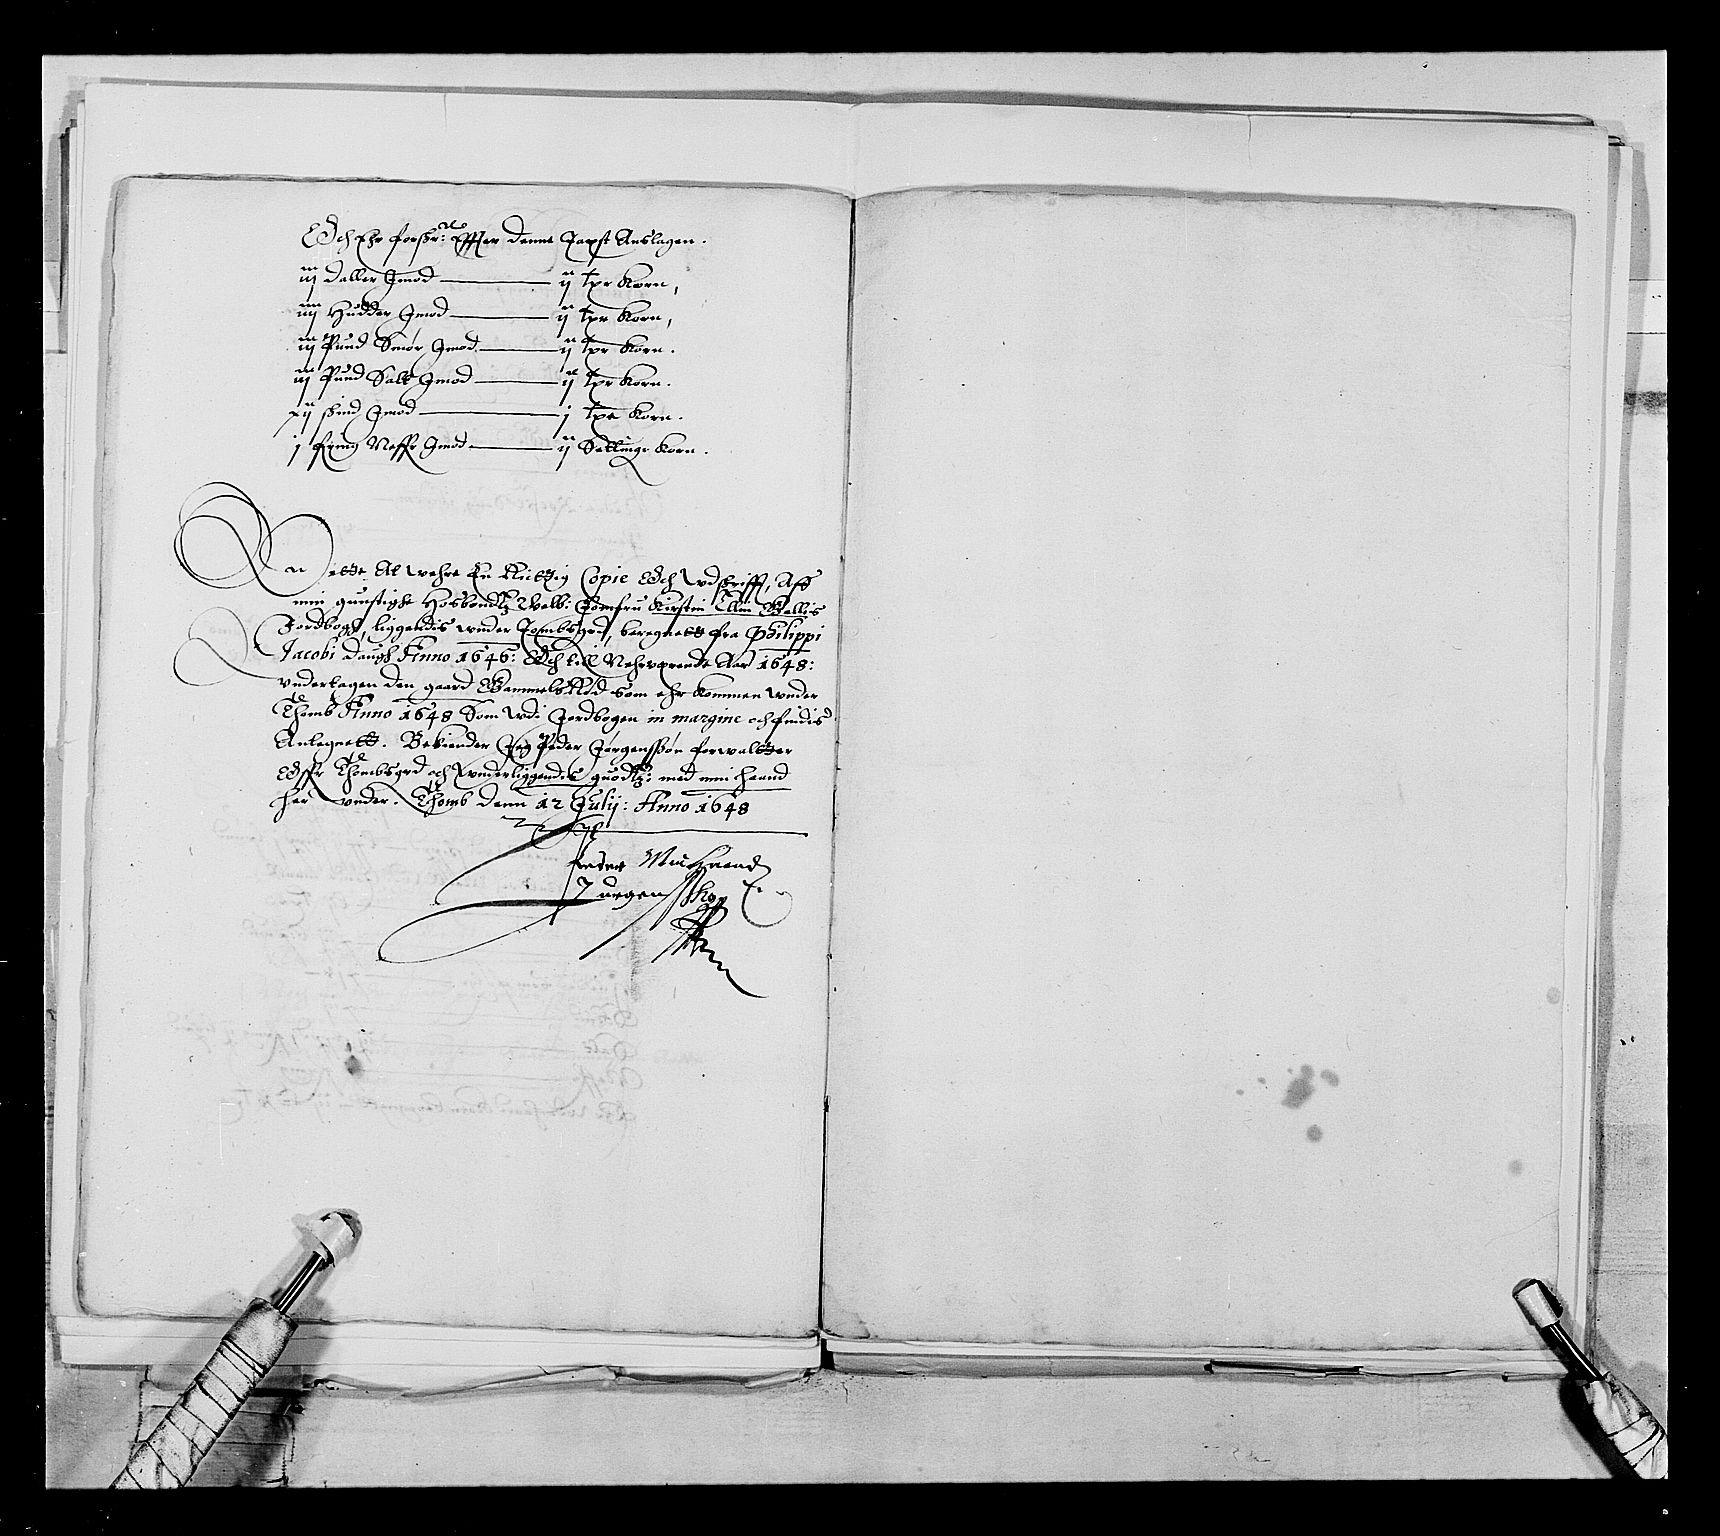 Och Ehr forskr: Effter denne Taxst Anslagen.
iij daller Imod ij tpr Korn,
iiij Hudder Imod ij tpr Korn,
iij Pund Smør Imod ij tpr Korn.
iij Pund Salt Imod ij tpr Korn.
xij skind Imod j tpe Korn.
j Neffr Imod ij Settinge Korn.
dette At wehre En Rictig Copie Och Udskrifft, Aff
min gunstighe Hosbonds Welb: Jomfru Kirstin
Jordbog, liggendis under Tombsgrd, beregnett fra Philippi
Jacobi daugh Anno 1646: Och till Nehrværende Aar 1648:
Undertagen den gaard som ehr kommen under
Thomb Anno 1648 Som udi Jordbogen in margine och findis
Antegnett. Bekiender Jeg Peder Jørgenssøn forwaltter
Offr Thombsgrd och underliggendis guodtz: med min haand
her under. Thomb denn 12 Julij: Anno 1648
Peder
Jurgenssøn
Min Haand